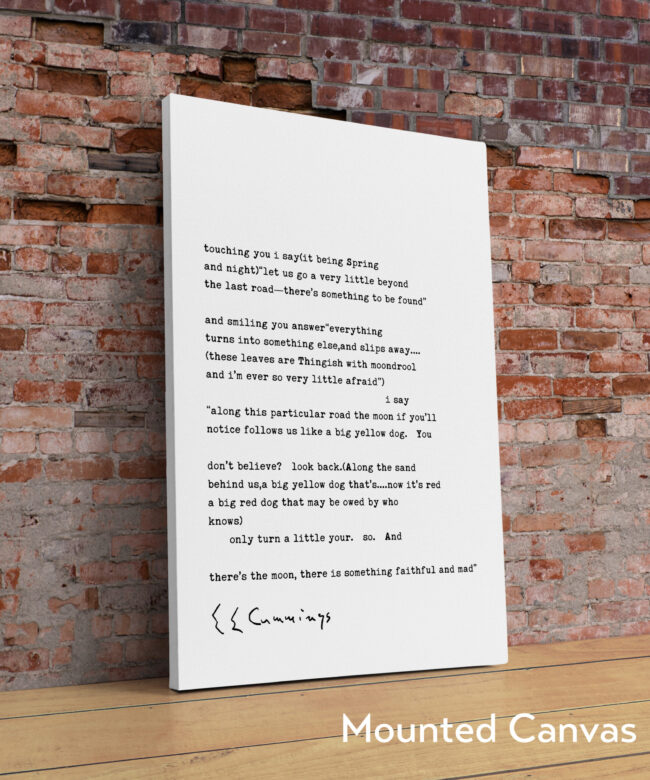 touching you i say(it being Spring
and night)"let us go a very little beyond
the last road—there's something to be found"
and smiling you answer"everything
turns into something else,and slips away....
(these leaves are Thingish with moondrool
and i'm ever so very little afraid")
i say
"along this particular road the moon if you'll
notice follows us like a big yellow dog. You
don't believe? look back.(Along the sand
behind us,a big yellow dog that's....now it's red
a big red dog that may be owed by who
knows)
only turn a little your. so. And
there's the moon, there is something faithful and mad"
EE Cummings
Mounted Canvas